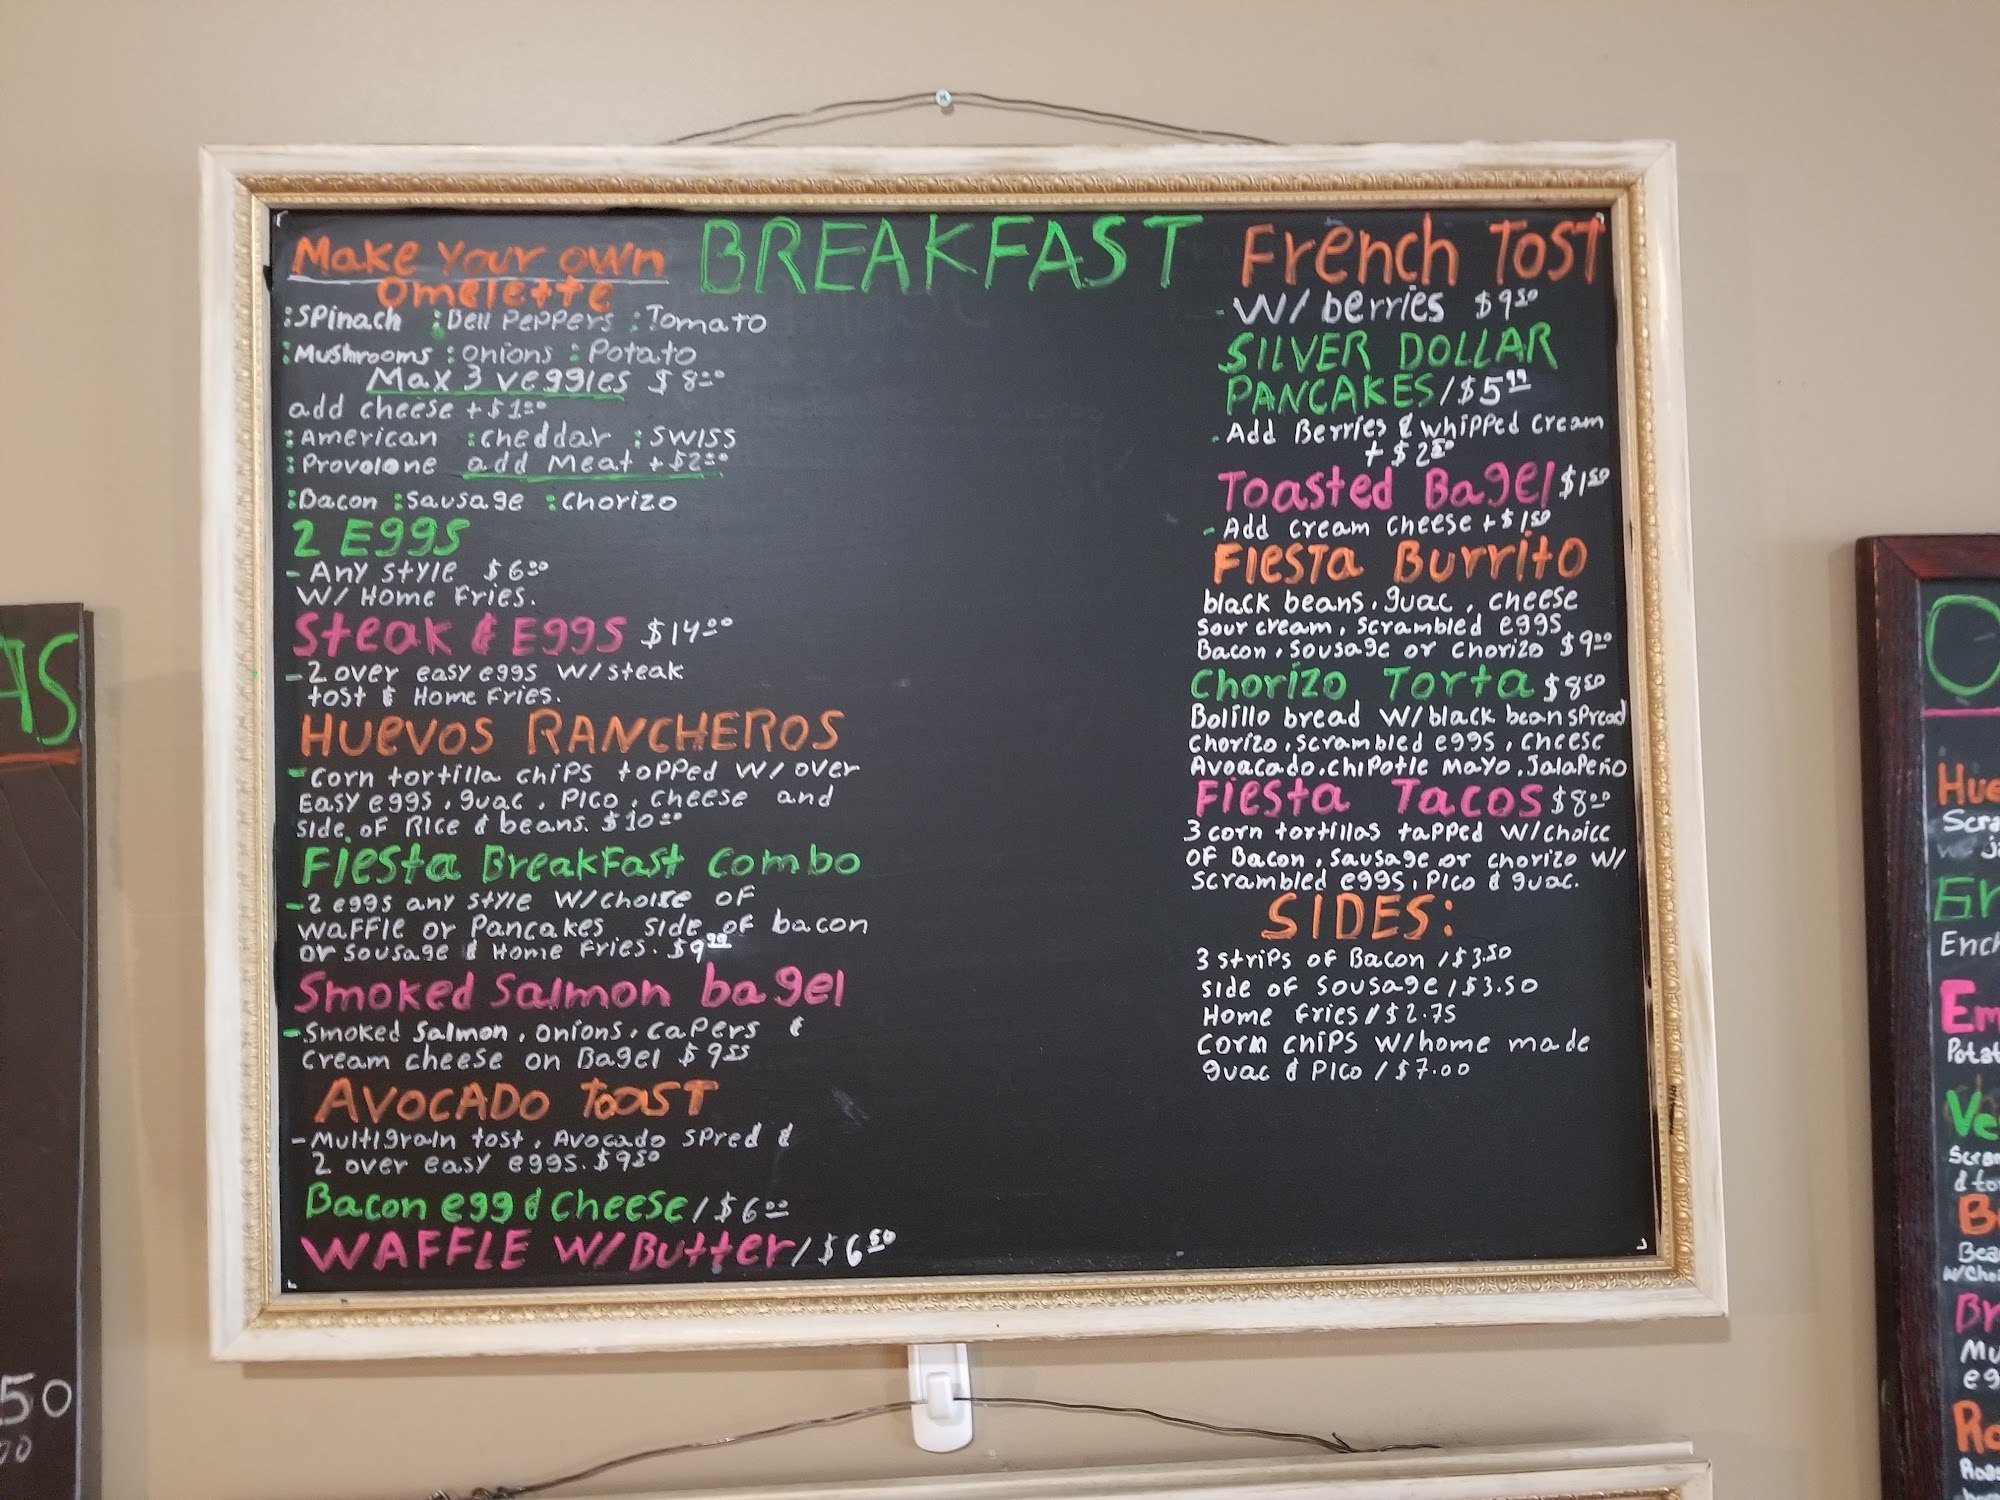 BREAKFAST
Make Your own
omelette
:Spinach :Bell Peppers :Tomato
:Mushrooms :onions :Potato
Max 3 veggies $8.00
add cheese +$1.00
:American :cheddar :SWISS
:Provolone add Meat +$2.00
:Bacon :Sausage :Chorizo
2 Eggs
-Any style $6.00
W/ Home Fries.
Steak & Eggs $14.00
-2 over easy eggs W/steak
tost & Home Fries.
HUEVOS RANCHEROS
-Corn tortilla chips topped W/over
Easy eggs, guac, Pico, cheese and
side of Rice & beans. $10.00
Fiesta BreakFast combo
-2 eggs any style W/choise of
waffle or Pancakes side of bacon
or sousage & Home Fries. $9.99
Smoked Salmon bagel
-Smoked Salmon, onions, capers &
cream cheese on Bagel $9.55
AVOCADO toast
-Multigrain tost, Avocado spred &
2 over easy eggs. $9.50
Bacon egg & Cheese/$6.00
WAFFLE W/Butter/$6.50
French Tost
-W/berries $9.50
SILVER DOLLAR
PANCAKES/$5.99
-Add Berries & whipped cream
+$2.50
Toasted Bagel $1.50
-Add cream cheese +$1.50
Fiesta Burrito
black beans, guac, cheese
sour cream, scrambled eggs
Bacon, Sousage or Chorizo $9.00
Chorizo Torta $8.50
Bolillo bread W/black bean spread
chorizo, scrambled eggs, cheese
Avoacado, chipotle mayo, Jalapeño
Fiesta Tacos $8.00
3 corn tortillas tapped W/choice
of Bacon, Sausage or chorizo W/
scrambled eggs, Pico & guac.
SIDES:
3 strips of Bacon /$3.50
side of Sousage/$3.50
Home Fries/$2.75
Corn chips W/home made
guac & Pico /$7.00
AS
50
00
O
Hue
Scra
Enc
Em
Potat
Ve
Scram
& to
B
Bea
w/cho
Br
Mu
eg
Ro
Roas